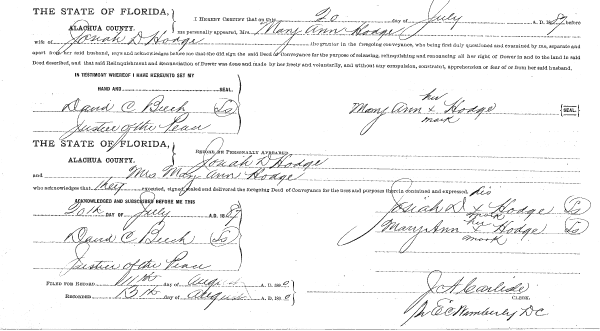 THE STATE OF FLORIDA,
ALACHUA COUNTY.
I HEREBY CERTIFY that on this 20 day of July A. D. 1889
me personally appeared, Mrs. Mary Ann Hodge
wife of Josiah D Hodge the grantor in the foregoing conveyance, who being first duly questioned and examined by me, separate and
apart from her said husband, says and acknowledges before me that she did sign the said Deed of Conveyance for the purpose of releasing, relinquishing and renouncing all her right of Dower in and to the land in said
Deed described, and that said Relinquishment and Renunciation of Dower was done and made by her freely and voluntarily, and without any compulsion, constraint, apprehension or fear of or from her said husband.
IN TESTIMONY WHEREOF I HAVE HEREUNTO SET MY
HAND AND SEAL.
David C. Beech
Justice of the Peace
her
Mary Ann + Hodge SEAL.
mark
THE STATE OF FLORIDA,
ALACHUA COUNTY.
BEFORE ME PERSONALLY APPEARED Josiah D. Hodge
and Mrs Mary Ann Hodge
who acknowledges that they executed, signed, sealed and delivered the foregoing Deed of Conveyance for the uses and purposes therein contained and expressed.
ACKNOWLEDGED AND SUBSCRIBED BEFORE ME THIS
20th DAY OF July A.D. 188
his
Josiah D + Hodge
mark
her
Mary Ann + Hodge
mark
David C Beech
Justice of the Peace
FILED FOR RECORD day of A. D. 18
RECORDED 13th day of August A. D. 18
J A Carlisle
CLERK.
Wimberly DC